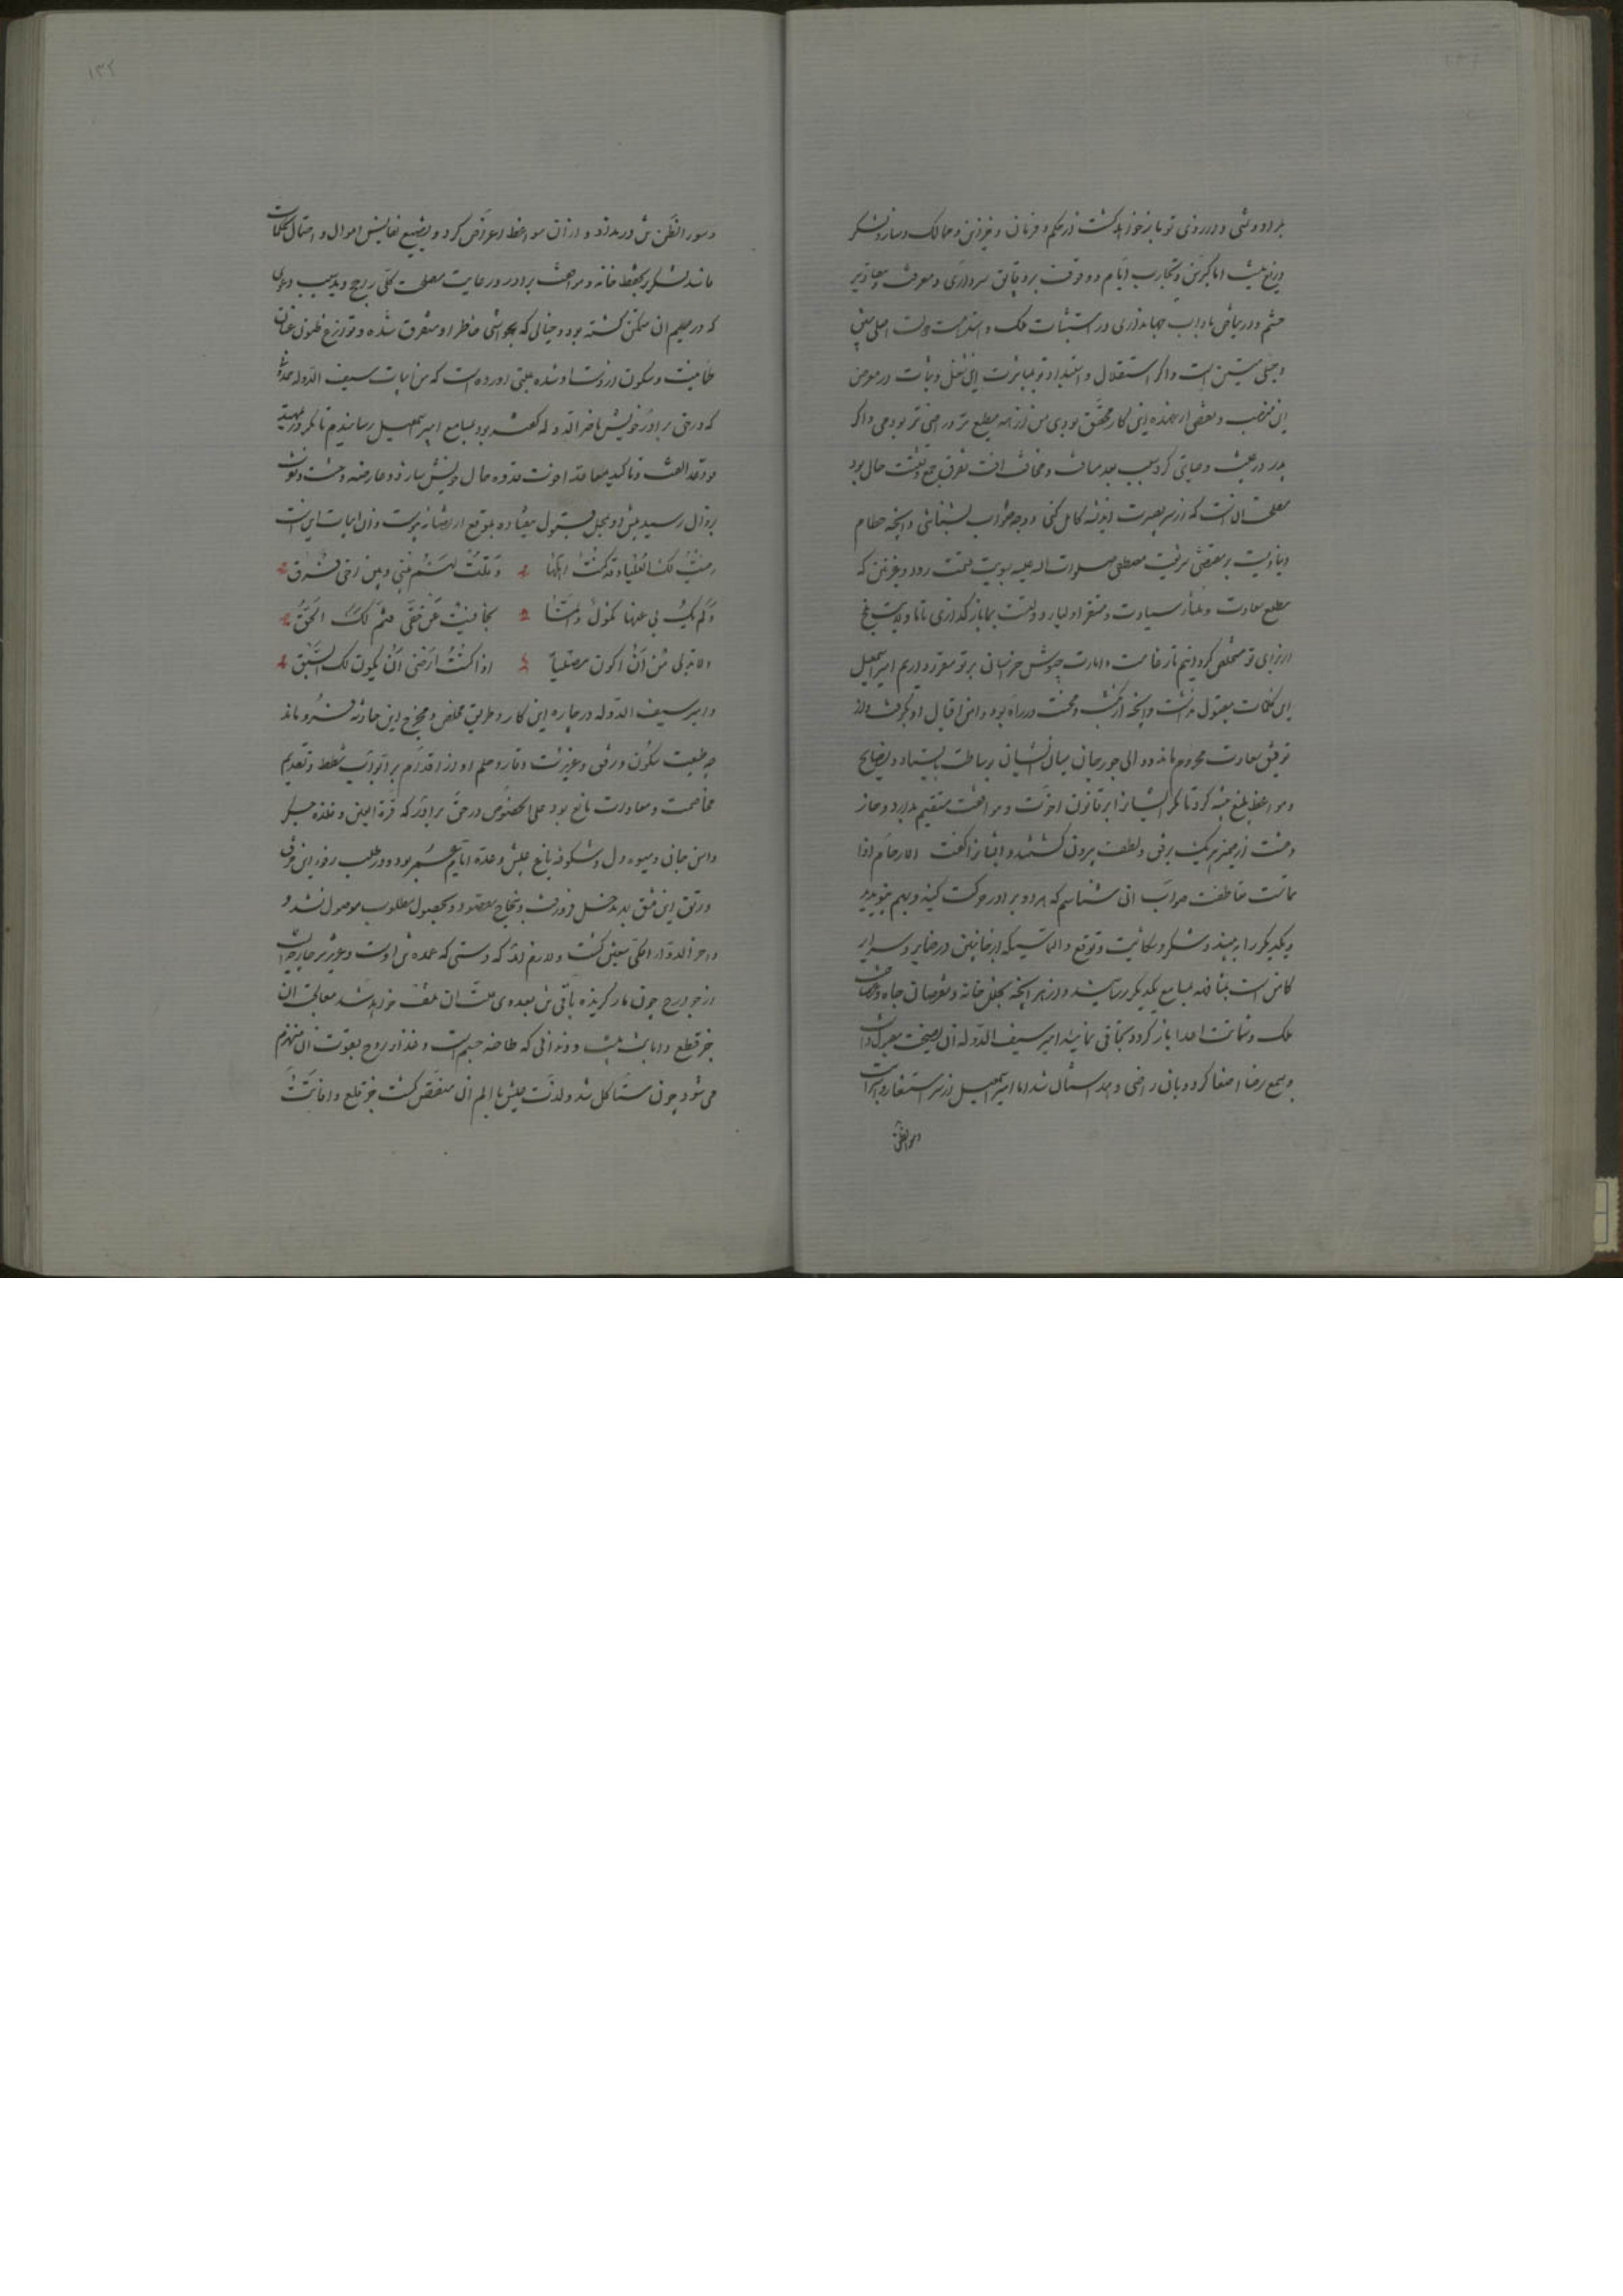 برادر و شی و در روی تو باز نخواهد کشت از حکم و فرمان و خزاین و ممالک و سایر لشکر
دریغ نیست اما کبر سن و تجارب ایام و وقوف بر دقایق سرداری و معرفت
حشم و ریاض باداب جهانداری در استثبات ملک و استدامت دولت اصلی متین
و حبلی متین است و اکر استقلال و استبداد تو بمباشرت این شغل و ثبات در معرض
این منصب و تفصی از عهده این کار محقق بودی من از همه مطیع تر و راضی تر بودمی و انک
پدر در غیبت وصایتی کرد بسبب بعد مسافت و مخافت افت تفرق جمع و تشتت حال بود
مصلحت ان است که از سر بصیرت اندیشه کامل کنی و وجه صواب بشناسی و انچه حطام
دنیاویست بر مقتضی شریعت مصطفی صلوات الله علیه بسویت قسمت رود و غزنین که
مطلع سعادت و منشأ سیادت و مستقر اولیاء دولتست بما باز کذاری تا ما ولایت بلخ
از برای تو مستخلص کردانیم تا زعامت و امارت جیوش خراسان بر تو مقرر داریم امیر اسمعیل
این کلمات بقبول نداشت و انچه از نکبت و محنت در راه بود دامن اقبال او بکرفت و از
توفیق سعادت محروم ماند و والی جورجان میان ایشان بوساطت بایستاد و نصایح
و مواعظ بلیغ پیش کرد تا مکر ایشانرا بر قانون اخوت و موافقت مستقیم بدارد و حاز
وحشت از ضمیر هر یک برفق و لطف بیرون کشد و ایشانرا کفت الارحام اذا
تماست تعاطفت صواب ان می شناسم که هر دو برادر حرکت کنید و بهم پیوندید
و یکدیکر را به بینید و شکر و شکایت و توقع و التماسیکه از جانبین در ضمایر و سرایر
کامن است بمشافهه بمسامع یکدیکر رسانید و از هر انچه بخلل خانه و نقصان جاه و عرصه
ملک و شماتت اعدا باز کردد تجافی نمایید امیر سیف الدوله ان نصیحت مقبول داشت
و بسمع رضا اصغا کرد و بان راضی و بصدد امتثال شد اما امیر اسمعیل از سر استشعار و استزادت
و سوء الظن
و سوء الظن تن در نداد و از ان مواعظ اعراض کرد و بتضییع نفایس اموال و احتمال تکلفات
مانند لشکر بحفظ خانه و موافقت برادر و رعایت مصلحت کلی راجح و بدین سبب دعوی
که در صمیم ان متمکن کشته بود و خیالی که بحواشی خاطر او متفرق شده و توزع ظنون عنان
طمانینت و سکون از دست او بشده عتبی اورده است که من ابیات سیف الدوله حمدان
که در حق برادر خویش ناصر الدوله کفته بود بمسامع امیر اسمعیل رسانیدم تا مکر در تمهید
قواعد الفت و تاکید معاقد اخوت قدوه حال خویش سازد و عارضه وحشت و نفرت
بزوال رسید پیش او بمحل قبول نیفتاد و بموقع ارتضا نپیوست و ان ابیات این است
رضیت لک العلیا و قد کنت اهلها و قلت لهم بینی و بین اخی فرق
و لم یک بی عنها نکول و انما تجافیت عن حقی فتم لک الحق
و لا بد لی من ان اکون مصلیا اذا کنت ارضی ان یکون لک السبق
و امیر سیف الدوله در چاره این کار و طریق مخلص و مخرج این حادثه فرو ماند
چه طبیعت سکون و رفق و غریزت وقار و حلم او از اقدام بر ابواب شطط و تقدیم
مخاصمت و معادات مانع بود علی الخصوص در حق برادر که قرة العین و فلذه جکر
و انس جانی و میوه دل و شکوفه باغ عیش و عده ایام عمر بود و در طلب رفو این خرق
و رتق این فتق بهر مدخل فرو رفت و بنجاح مقصود و بحصول مطلوب موصول نشد و
و اخر الدوا الکی معین کشت و لازم شد که دستی که عمده تن اوست و عزیزتر جارحه است
از جوارح چون مار کزیده باقی تن بعدوی علت ان تلف خواهد شد معالجت ان
جز قطع و ابانت نیست و دندانی که طاحنه جسم است و غذای روح بقوت ان منهضم
می شود چون متاکل شد و لذت عیش با الم ان منغص کشت جز قلع و اماتت
۱۳۲